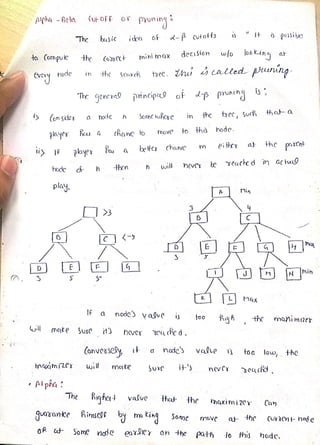 Alpha-Beta Cutoff or pruning:
The basic idea of α-β cutoffs is "It a possible
to Compute the correct minimax decision w/o looking at
every node in the search tree. This is called pruning.
The general principle of α-β pruning is:
i) Consider a node n somewhere in the tree, such that a
player has a chance to move to this node.
ii) If player has a better chance m either at the parent
node of n then n will never be reached in actual
play.
A Min
>3
3 4
B C
B C <-5
D E F G H Max
3 5
D E F G
3 5 5
I J M N Min
K L Max
If a node's value is too high, the maximizer
will make sure it's never reached.
Conversely, if a node's value is too low, the
maximizer will make sure it's never reached.
• Alpha:
The highest value that the maximizer can
guarantee himself by making some move at the current node
OR at some node earlier on the path to this node.